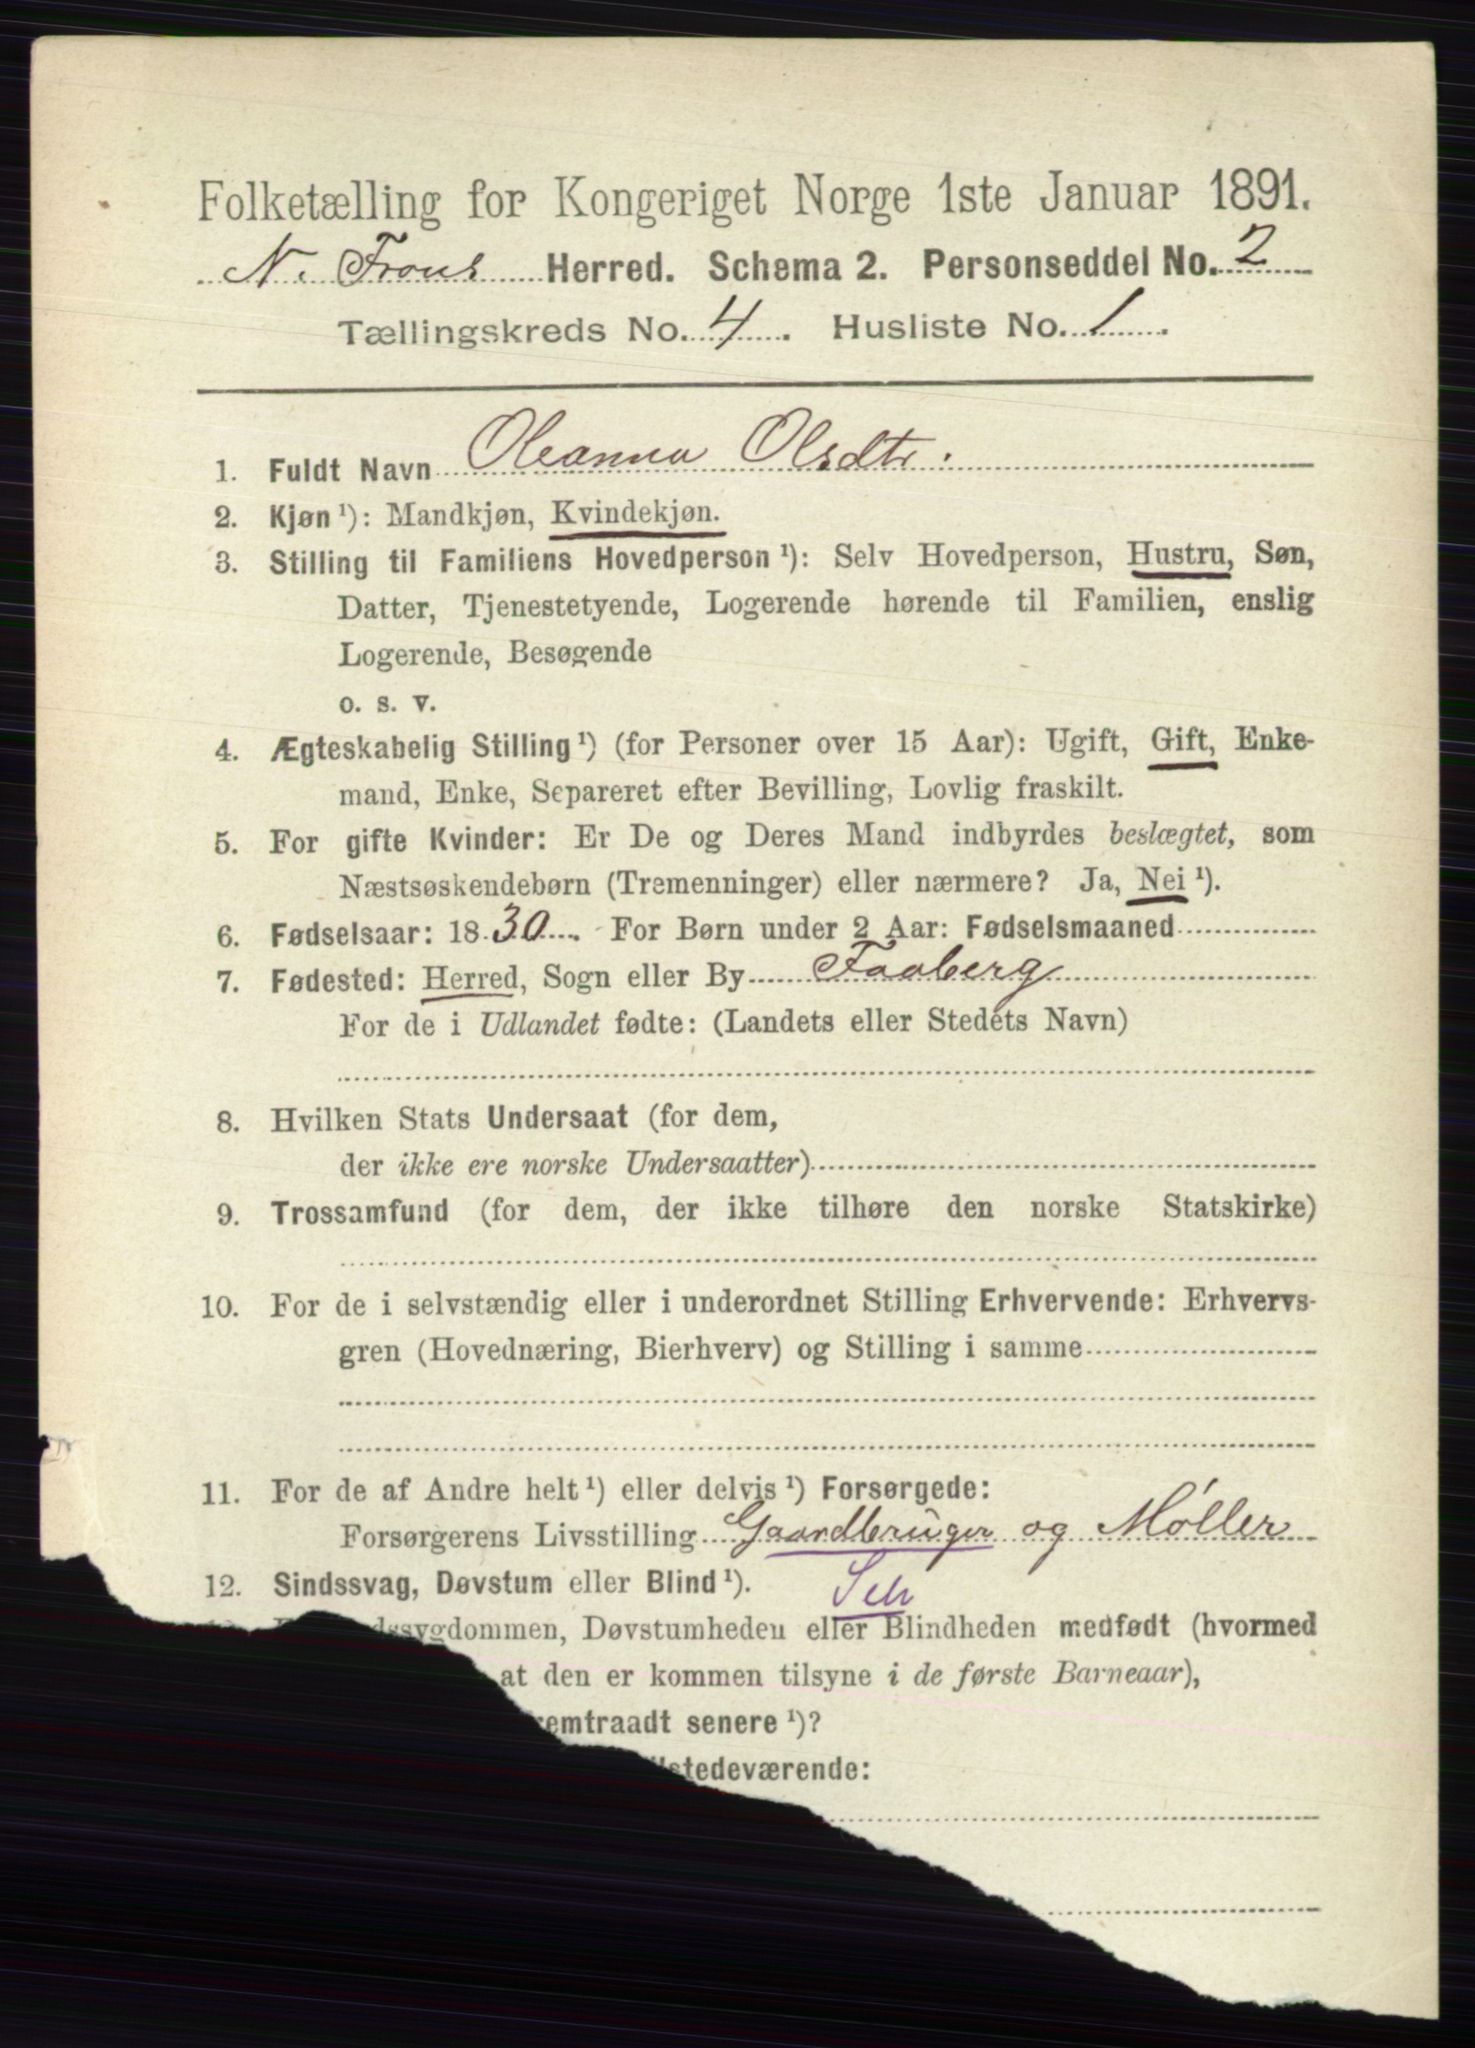 Folketælling for Kongeriget Norge 1ste Januar 1891.
N. Frons Herred. Schema 2. Personseddel No. 2
Tællingskreds No. 4. Husliste No. 1.
1. Fuldt Navn Oleanna Olsdtr.
2. Kjøn ¹): Mandkjøn, Kvindekjøn.
3. Stilling til Familiens Hovedperson ¹): Selv Hovedperson, Hustru, Søn,
Datter, Tjenestetyende, Logerende hørende til Familien, enslig
Logerende, Besøgende
o. s. v.
4. Ægteskabelig Stilling ¹) (for Personer over 15 Aar): Ugift, Gift, Enke-
mand, Enke, Separeret efter Bevilling, Lovlig fraskilt.
5. For gifte Kvinder: Er De og Deres Mand indbyrdes beslægtet, som
Næstsøskendebørn (Tremenninger) eller nærmere? Ja, Nei ¹).
6. Fødselsaar: 1830. For Børn under 2 Aar: Fødselsmaaned
7. Fødested: Herred, Sogn eller By Faaberg
For de i Udlandet fødte: (Landets eller Stedets Navn)
8. Hvilken Stats Undersaat (for dem,
der ikke ere norske Undersaatter)
9. Trossamfund (for dem, der ikke tilhøre den norske Statskirke)
10. For de i selvstændig eller i underordnet Stilling Erhvervende: Erhvervs-
gren (Hovednæring, Bierhverv) og Stilling i samme
11. For de af Andre helt ¹) eller delvis ¹) Forsørgede:
Forsørgerens Livsstilling Gaardbruger og Møller
12. Sindssvag, Døvstum eller Blind ¹).
dssygdommen, Døvstumheden eller Blindheden medfødt (hvormed
at den er kommen tilsyne i de første Barneaar),
remtraadt senere ¹)?
stedeværende: